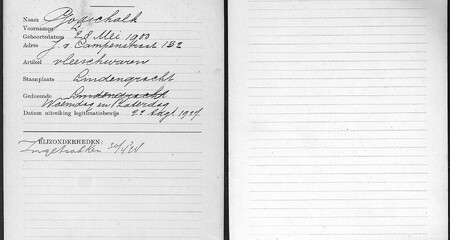 Naam Gosschalk
Voornamen
Geboortedatum 28 Mei 1903
Adres J. v. Campenstraat 152
Artikel vleeschwaren
Staanplaats Lindengracht
Gedeende Lindengracht
Woensdag en Zaterdag
Datum uitreiking legitimatiebewijs 22 Aug. 1927.
BIJZONDERHEDEN:
Ingetrokken 30/4/28